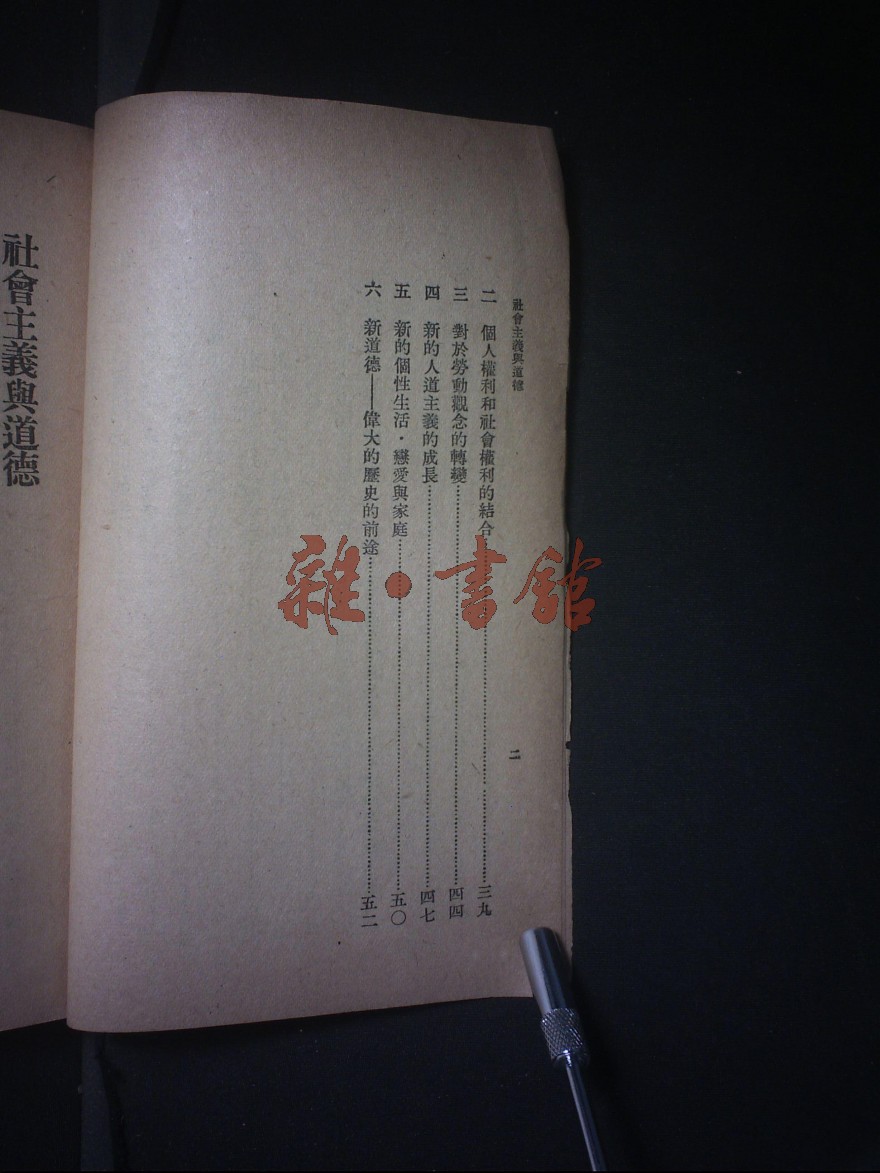 社會主義與道德
二 個人權利和社會權利的結合……三九
三 對於勞動觀念的轉變……四四
四 新的人道主義的成長……四七
五 新的個性生活・戀愛與家庭……五〇
六 新道德——偉大的歷史的前途……五二
二
社會主義與道德
雜・書館